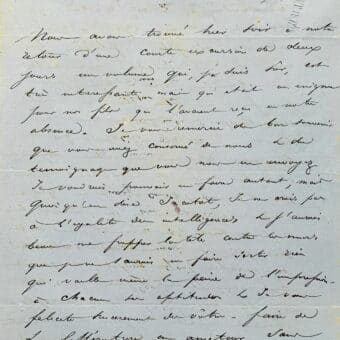 Nous avons trouvé hier soir à notre
retour d'une courte excursion de deux
jours un volume qui, je suis sûr, est
très intéressant, mais qui était un énigme
pour nos fils qui l'avaient reçu en notre
absence. Je vous remercie de bon souvenir
que vous avez conservé de nous & du
témoignage que vous nous en envoyez
Je voudrais pouvoir en faire autant, mais
quoiqu'en dise Jacotot, je ne crois pas
à l'égalité des intelligences & j'aurais
beau me frapper la tête contre les murs
que je ne saurais en faire sortir rien
qui vaille même la peine de l'impression.
à chacun ses aptitudes & je vous
félicite sincèrement des vôtres. faire de
la littérature en amateur sans